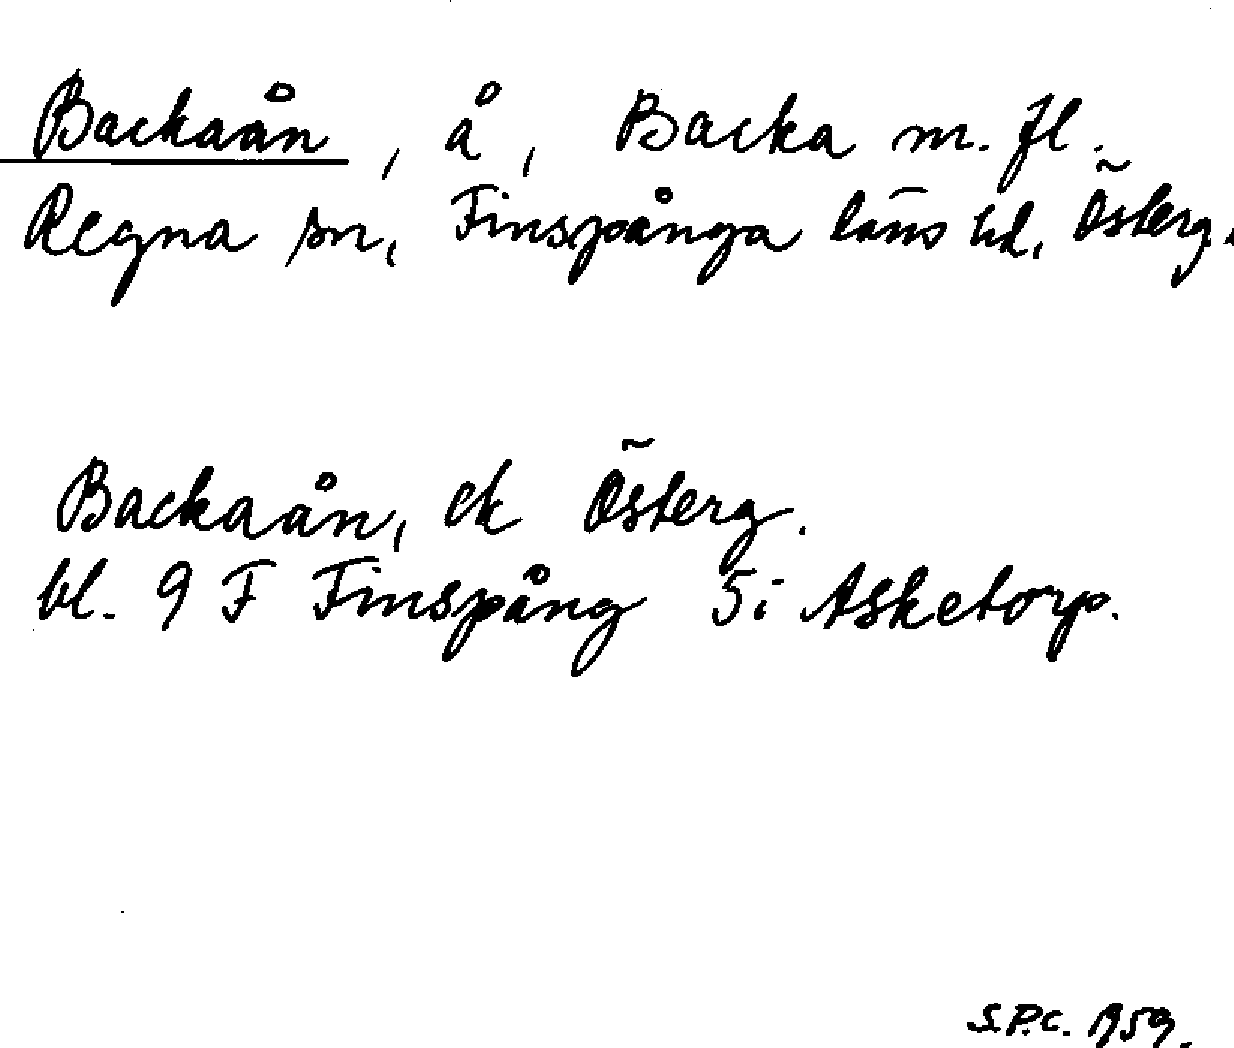 Backaån, å, Backa m. fl.
Regna sn, Finspånga läns hd, Österg.
Backaån, ek Österg.
bl. 9 F Finspång 5i Asketorp.
S.P.C. 1959.